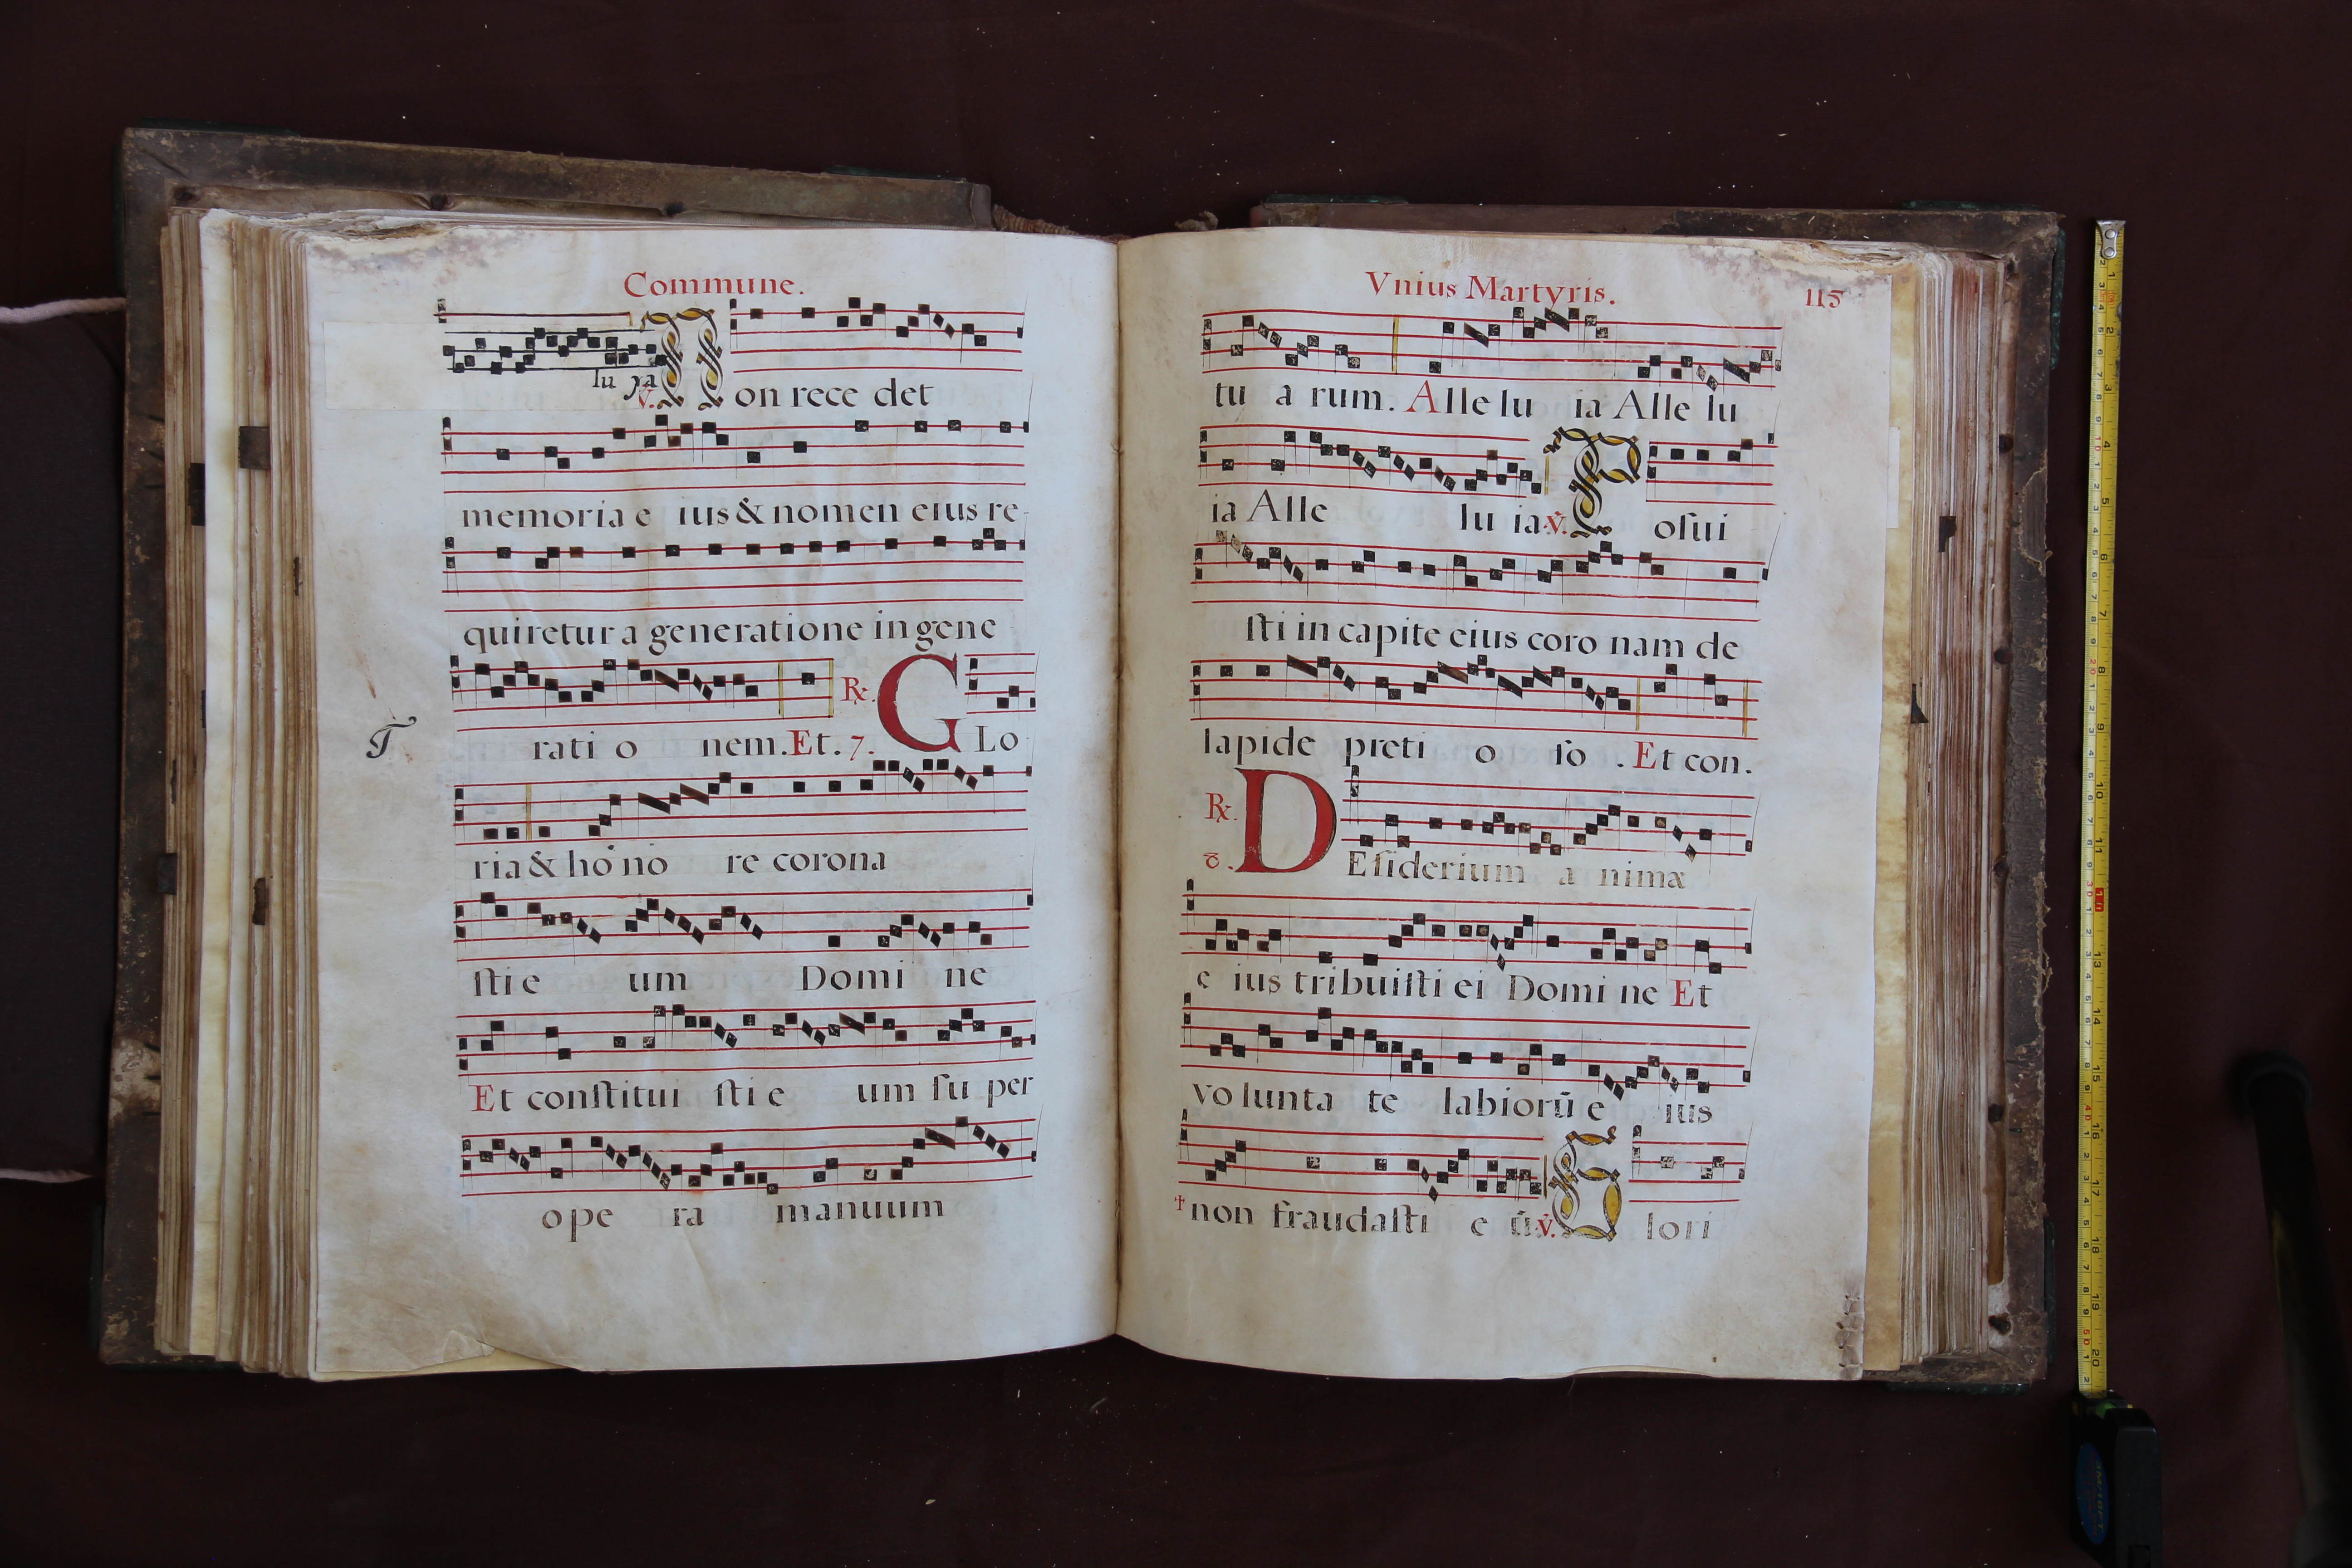 Commune.
lu ya
℣. Non rece det
memoria e ius & nomen eius re-
quiretur a generatione in gene
rati o nem. Et. 7. ℟. GLo
T
ria & ho no re corona
ſti e um Domi ne
Et conſtitui ſti e um ſu per
ope ra manuum
Vnius Martyris. 115
tu a rum. Alle lu ia Alle lu
ia Alle lu ia ℣. Poſui
ſti in capite eius coro nam de
lapide preti o ſo . Et con.
℟. 8. DEſiderium a nimæ
e ius tribuiſti ei Domi ne Et
vo lunta te labiorū e ius
† non fraudaſti e ū ℣. Glori